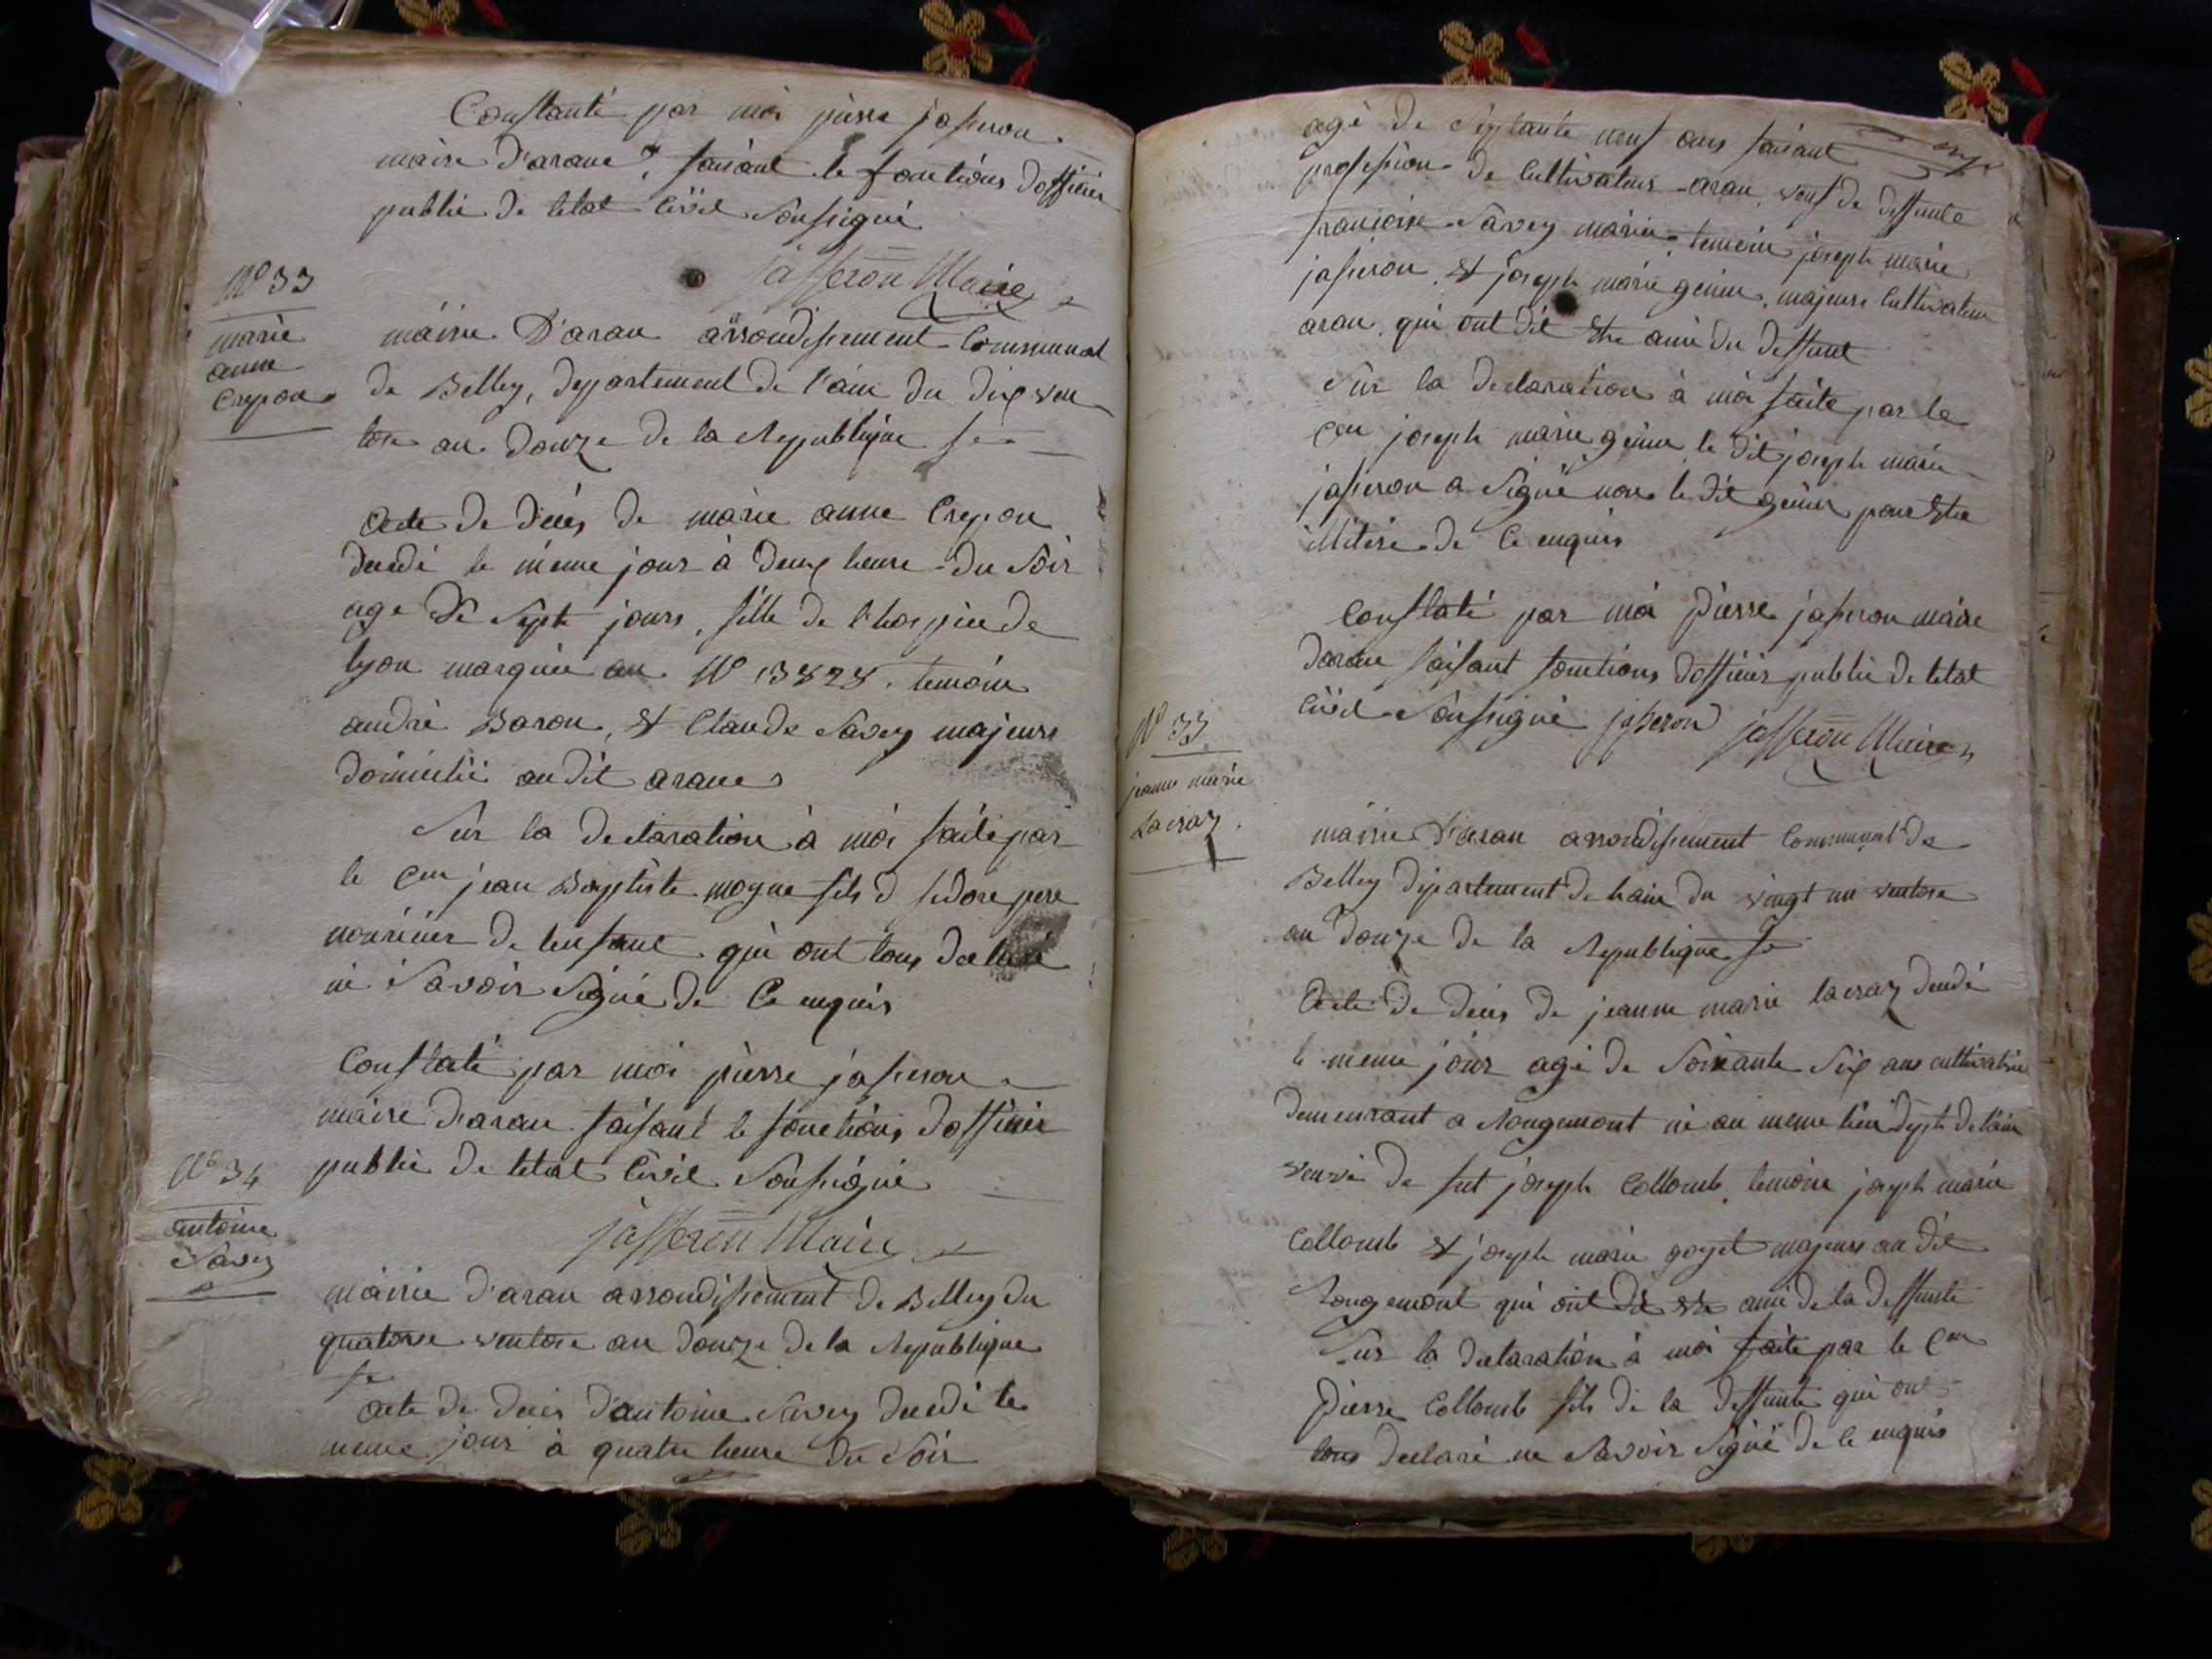 Constaté par moi pierre jasseron
maire d'aranc, faisant le fonctions dofficier
public de letat Civil Soussigné
jasseron Maire
N° 33
marie
anne
Crepon
mairie D'aran arrondissement Communal
de Belley, departement de l'ain du dix ven
tose an Douze de la Republique
Acte de deces de marie anne Crepon
decedé le même jour à deux heure du Soir
age de Sept jours, fille de l'hospice de
lyon marquée au N° 13828. temoin
andré Baron, et Claude Savey majeurs
domicilié audit aranc
Sur la declaration à moi faite par
le Cen jean Baptiste moyne fils d isidore pere
nouricier de lenfant qui ont tous declaré
ne Savoir Signé de Ce enquis
Constaté par moi pierre jasseron
maire d'aran faisant le fonctions dofficier
public de letat Civil Soussigné
jasseron Maire
N° 34
antoine
Savey
mairie d'aran arrondissement de Belley du
quatorse ventose an douze de la Republique
acte de deces d'antoine Savey decedé le
meme jour à quatre heure du Soir
agé de Septante neuf ans faisant
profession de Cultivateur aran, veuf de deffunte
françoise Savey mariée, temoin joseph marie
jasseron, et joseph marie genin, majeurs Cultivateur
aran, qui ont dit Etre ami du deffunt
Sur la declaration à moi faite par le
Cen joseph marie genin le dit joseph marie
jasseron a Signé non le dit genin pour Etre
illiteré de Ce enquis
Constaté par moi Pierre jasseron maire
daran faisant fonctions dofficier public de letat
Civil Soussigné jasseron jasseron Maire
N° 35
jeanne marie
Lacraz
mairie D'aran arrondissement Communal de
Belley departement de lain du vingt un ventose
an douze de la Republique
Acte de deces de jeanne marie lacraz decedé
le meme jour agé de Soixante Six ans cultivatrice
demeurant a Rougemont né au meme lieu dept de l'ain
veuve de fut joseph Collomb, temoin joseph marie
Collomb et joseph marie goyet majeurs au dit
Rougemont qui ont dit etre ami de la deffunte
Sur la declaration à moi faite par le Cen
Pierre Collomb fils de la deffunte qui ont
tous declaré ne Savoir Signé de Ce enquis